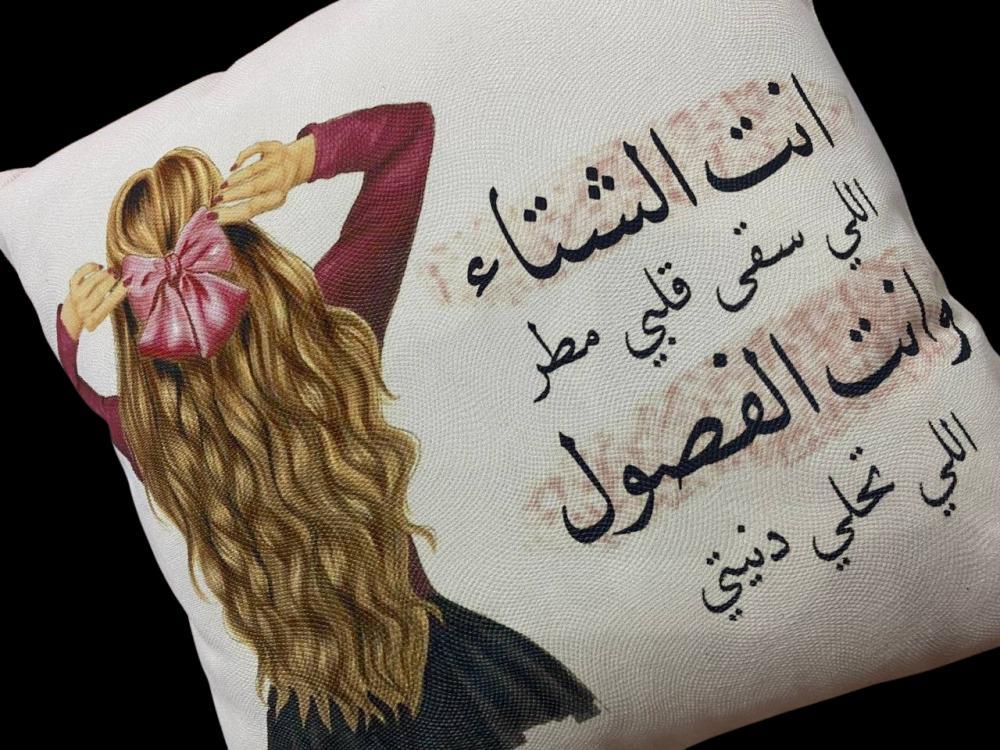 انت الشتاء
اللي سقى قلبي مطر
وانت الفصول
اللي تحلي دنيتي